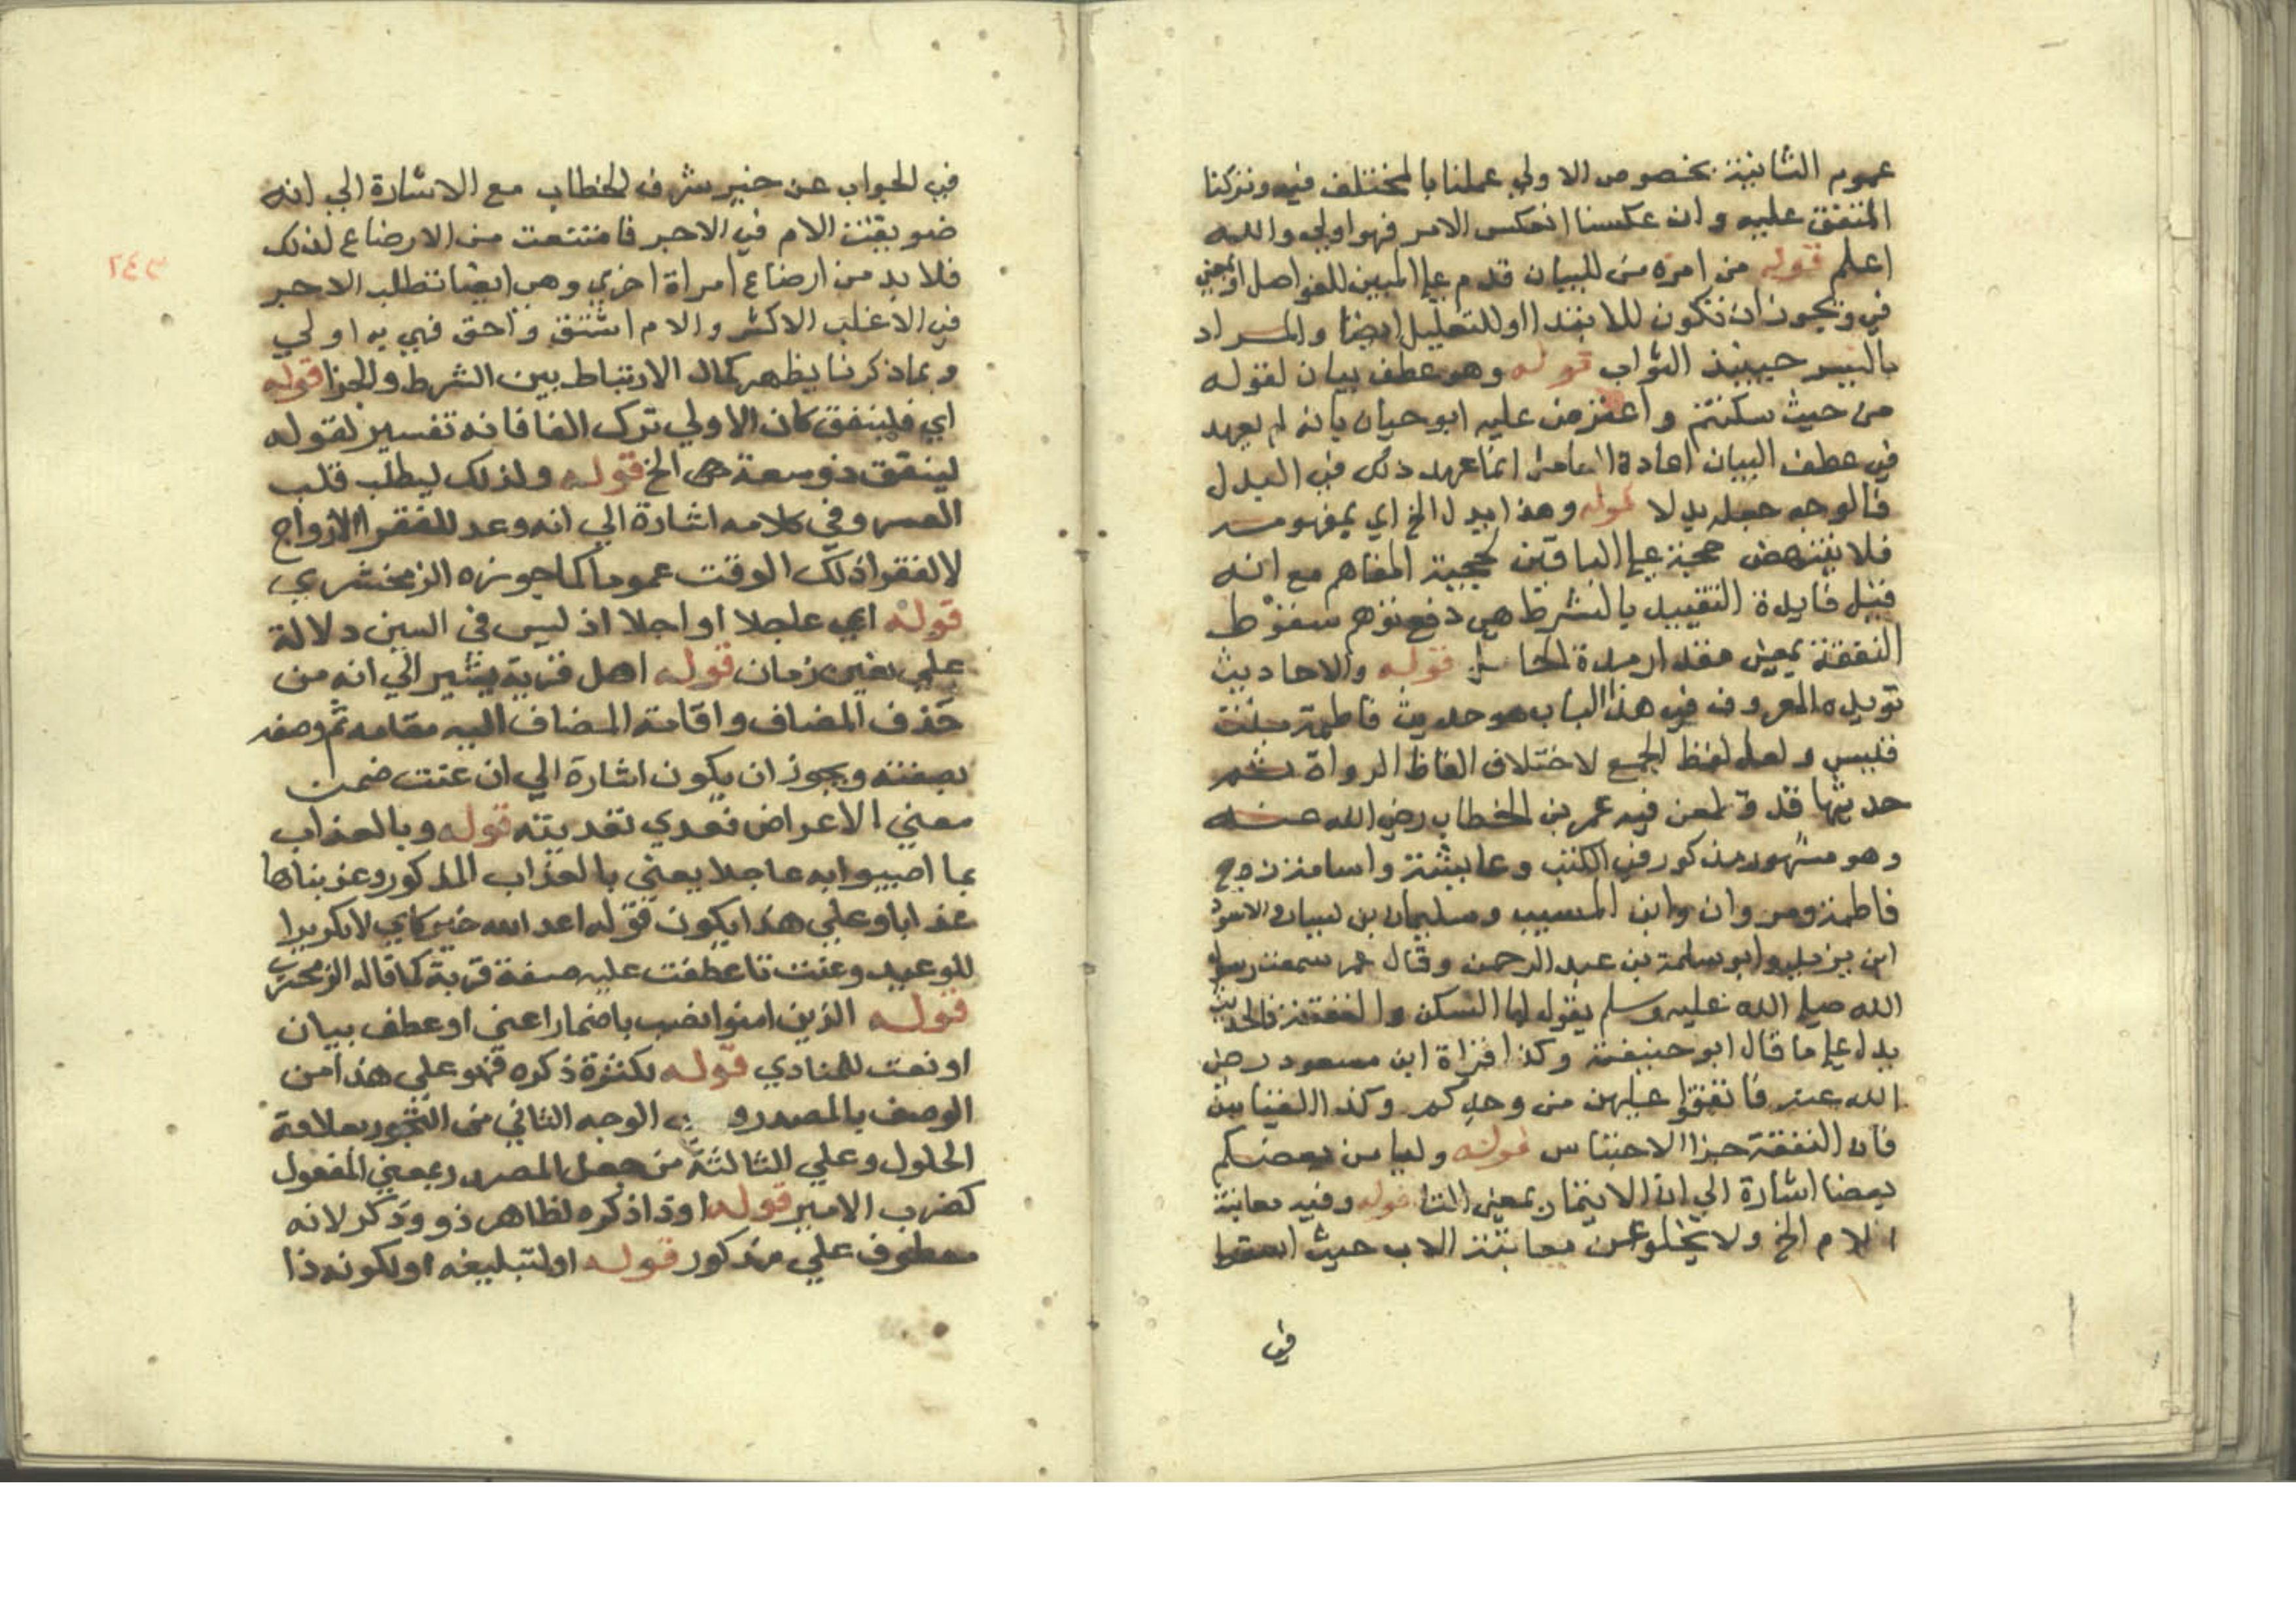 عموم الثانية بخصوص الاولي عملنا بالمختلف فيه وتركنا
المتفق عليه وان عكسنا انعكس الامر فهو اولي والله
اعلم قوله من امره من للبيان قدم علي المبين للفواصل او بمعني
في ويجوز ان تكون للابتدا او للتعليل ايضا والمراد
باليسر حينئذ الثواب قوله وهو عطف بيان لقوله
من حيث سكنتم واعترض عليه ابو حيان بانه لم يعهد
في عطف البيان اعادة العامل انما عهد ذلك في البدل
فالوجه جعله بدلا قوله وهذا يدل الخ اي بمفهومه
فلا ينتهض حجة علي النافين لحجية المفاهم مع انه
قيل فايدة التقييد بالشرط هي دفع توهم سقوط
النفقة بمعني مقدار مدة الحامل قوله والاحاديث
تويده المعروف في هذا الباب هو حديث فاطمة بنت
قيس ولعل لفظ الجمع لاختلاف الفاظ الرواة ثم
حديثها قد طعن فيه عمر بن الخطاب رضي الله عنه
وهو مشهور مذكور في الكتب وعايشة واسامة زوج
فاطمة ومروان وابن المسيب وسليمان بن يسار والاسود
ابن يزيد وابو سلمة بن عبد الرحمن وقال عمر سمعت رسول
الله صلي الله عليه وسلم يقول لها السكن والنفقة فالحديث
يدل علي ما قال ابو حنيفة وكذا قراة ابن مسعود رضي
الله عنه فانفقوا عليهن من وجدكم وكذا القياس
فان النفقة جزا الاحتباس قوله وليامن بعضكم
بعضا اشارة الي ان الايتمار بمعني التا قوله وفيه معاتبة
الام الخ ولا يخلو عن معاتبة الاب حيث اسقط
في
في الجواب عن حيز شرف الخطاب مع الاشارة الي انه
ضويقت الام في الاجر فامتنعت من الارضاع لذلك
فلا بد من ارضاع امراة اخري وهي ايضا تطلب الاجر
في الاغلب الاكثر والام اشفق واحق فهي به اولي
وبما ذكرنا يظهر كمال الارتباط بين الشرط والجزا قوله
اي فلينفق كان الاولي ترك الفا فانه تفسير لقوله
لينفق ذو سعة هي الخ قوله ولذلك ليطلب قلب
العسر وفي كلامه اشارة الي انه وعد للفقرا الازواج
لا لفقرا ذلك الوقت عموما كما جوزه الزمخشري
قوله اي عاجلا او اجلا اذ ليس في السين دلالة
علي تعين زمان قوله اهل قرية يشير الي انه من
حذف المضاف واقامة المضاف اليه مقامه ثم وصفه
بصفته ويجوز ان يكون اشارة الي ان عتت ضمت
معني الاعراض فعدي تعديته قوله وبالعذاب
بما اصيبوا به عاجلا يعني بالعذاب المذكور وعذبناها
عذابا وعلي هذا يكون قوله اعد الله خبر كاي لا تكريرا
للوعيد وعتت تا عطفت عليه صفة قرية كما قاله الزمخشري
قوله الذين امنوا نصب باضمار اعني او عطف بيان
او نعت للمنادي قوله لكثرة ذكره فهو علي هذا من
الوصف بالمصدر و الوجه الثاني من التجوز بعلاقة
الحلول وعلي الثالثة من جعل المصدر بمعني المفعول
كضرب الامير قوله او ذا ذكره لظاهر ذو وذكر لانه
معطوف علي مذكور قوله او لتبليغه او لكونه ذا
٢٤٣